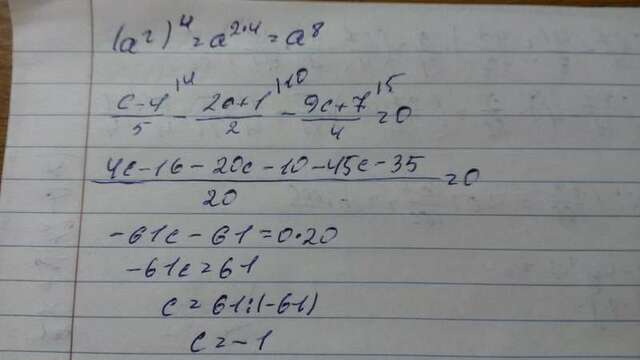 (a²)⁴ = a^2·4 = a⁸
(c-4)/5 |4 - (2c+1)/2 |10 - (9c+7)/4 |5 = 0
(4c-16-20c-10-45c-35)/20 = 0
-61c - 61 = 0·20
-61c = 61
c = 61:(-61)
c = -1